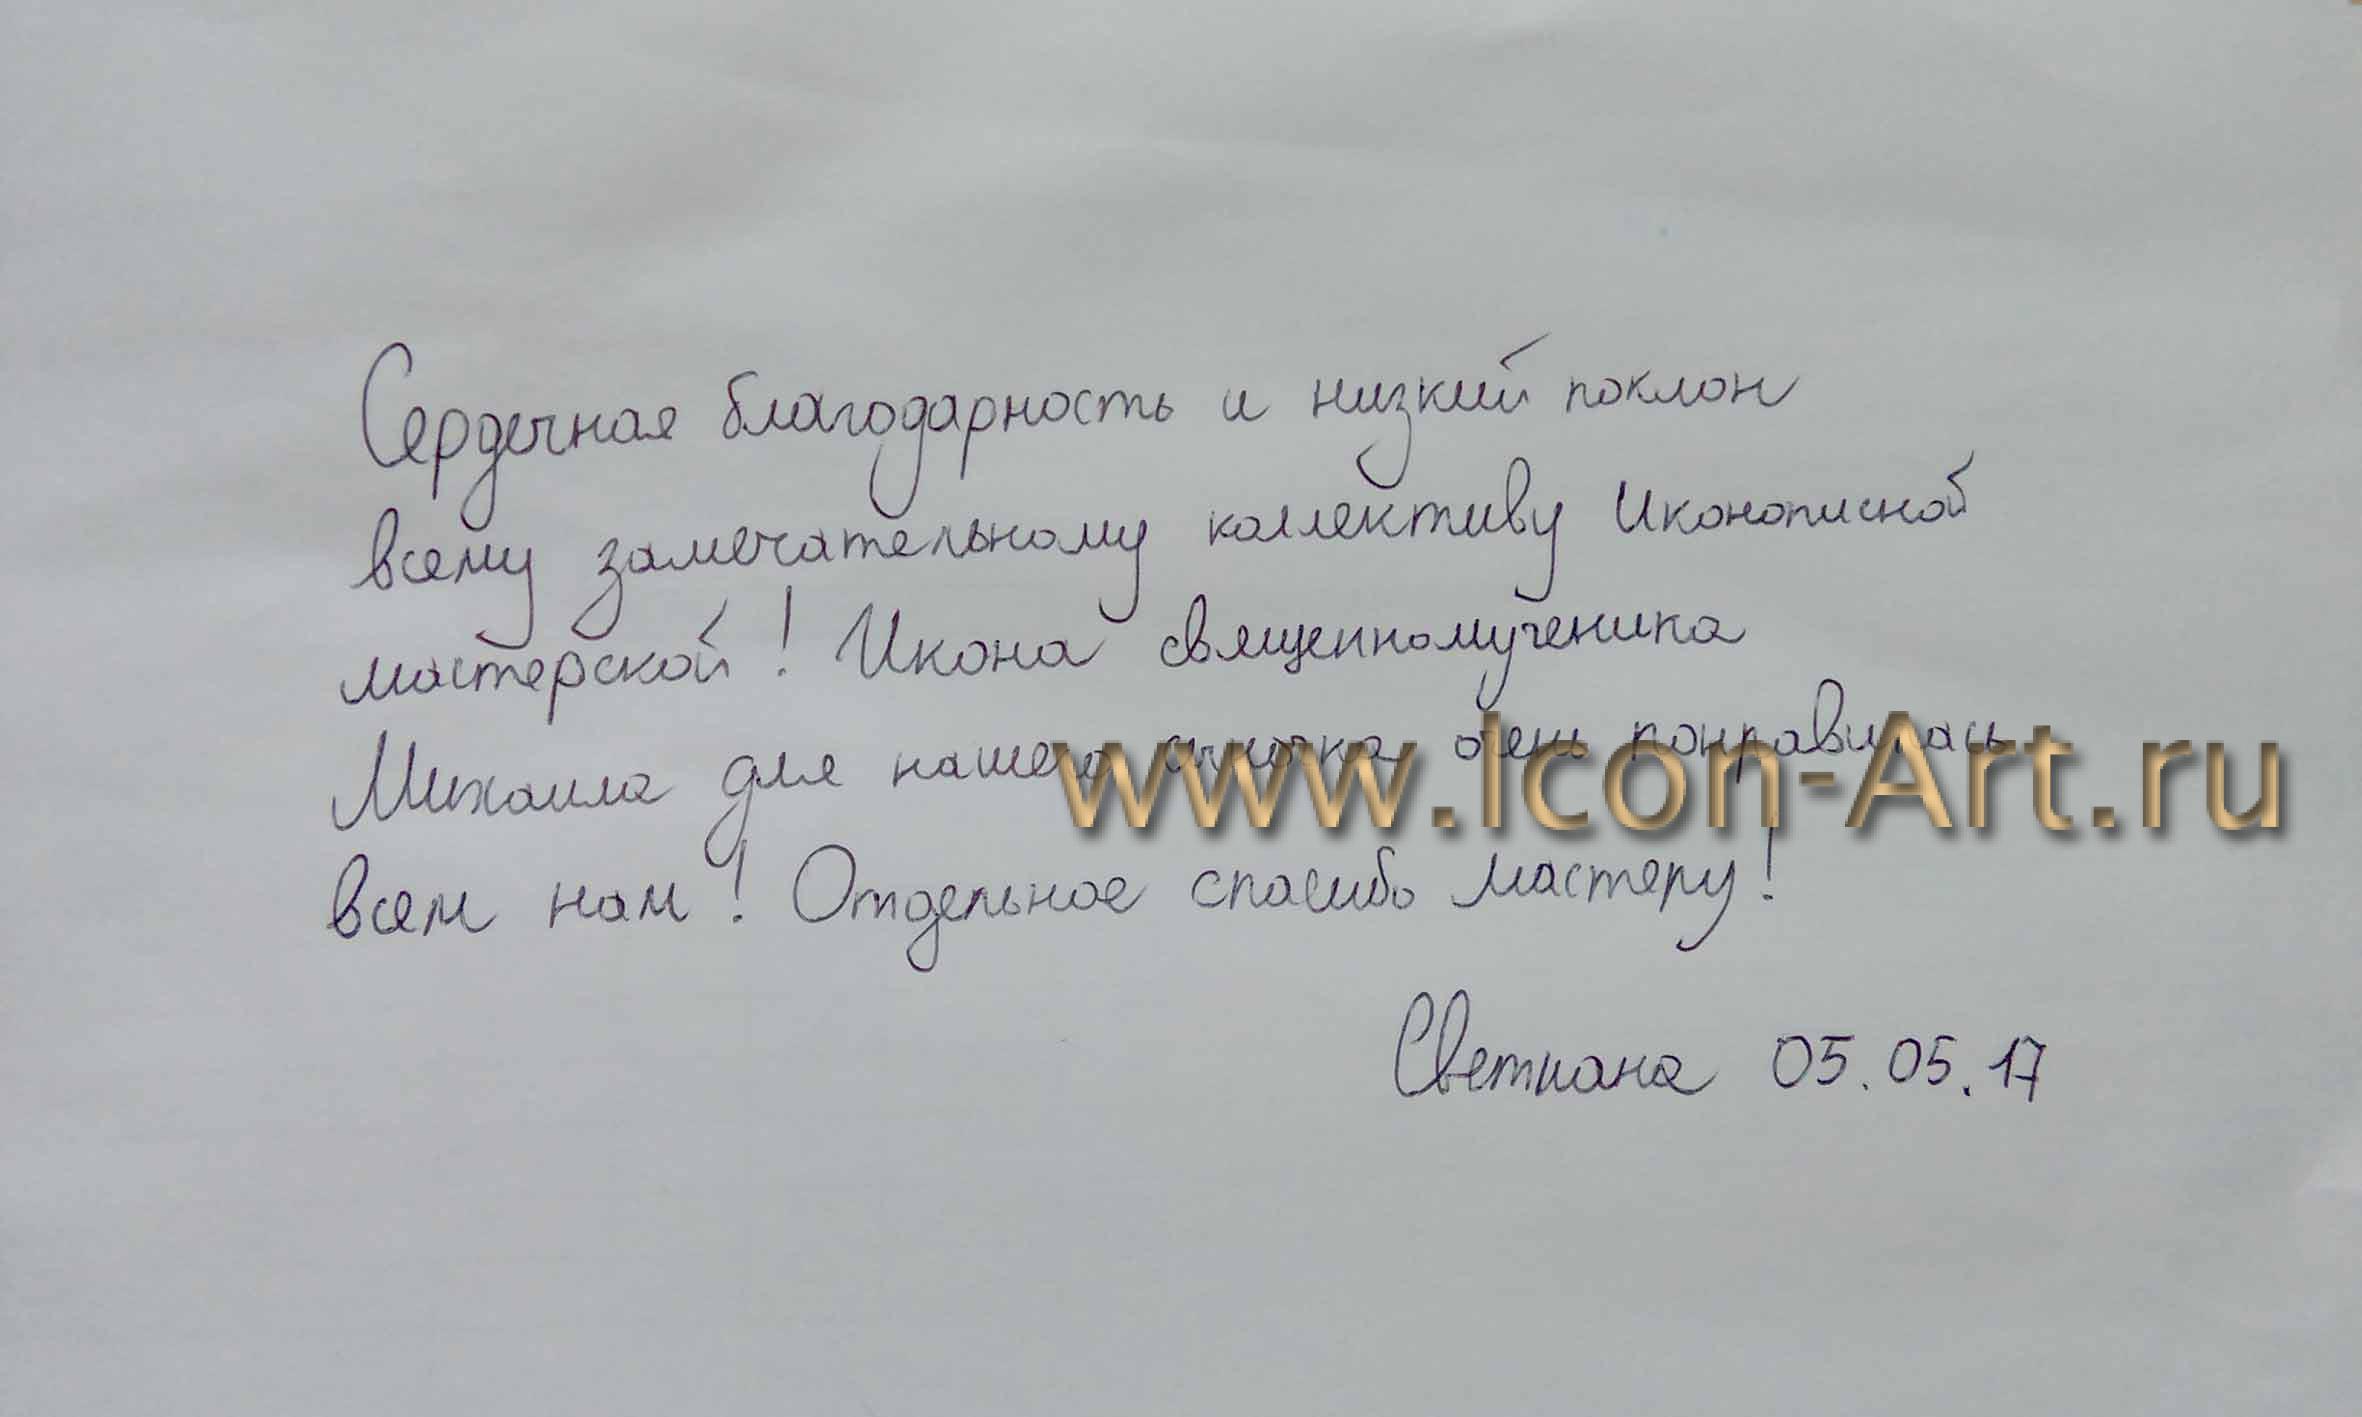 Сердечная благодарность и низкий поклон
всему замечательному коллективу Иконописной
мастерской! Икона священномученика
Михаила для нашего сыночка очень понравилась
www.Icon-Art.ru
всем нам! Отдельное спасибо мастеру!
Светлана 05.05.17